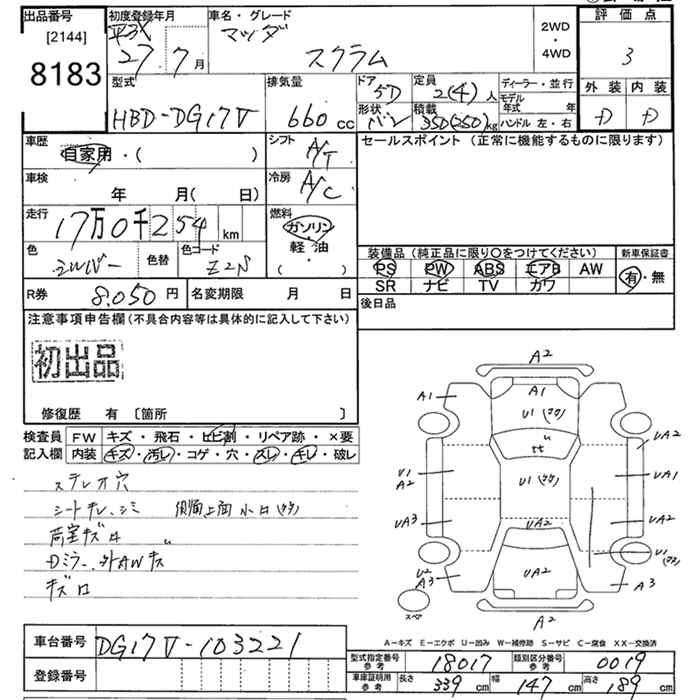 出品番号
[2144]
8183
初度登録年月
27年 7月
車名・グレード
マツダ
スクラム
2WD
・
4WD
評価点
3
外装 内装
D D
型式
HBD-DG17V
排気量
660 cc
ドア
5D
定員
2(4)人
形状
バン
積載
350(250)kg
ディーラー・並行
モデル年式 年
ハンドル 左・右
車歴
自家用・( )
シフト
A/T
セールスポイント (正常に機能するものに限ります)
車検
年 月( 日)
冷房
A/C
走行
17万0千254 km
燃料
ガソリン
軽油
( ・ )
色
シルバー
色替
色コード
Z2S
装備品 (純正品に限り○をつけてください)
新車保証書
PS PW ABS エアB AW
有・無
SR ナビ TV カワ
R券 8,050円
名変期限 月 日
後日品
注意事項申告欄(不具合内容等は具体的に記入して下さい)
初出品
修復歴 有 〔箇所 〕
検査員
記入欄
FW キズ・飛石・ヒビ割・リペア跡・×要
内装 キズ・汚レ・コゲ・穴・スレ・キレ・破レ
ステレオ穴
シートキレ、シミ
荷室キズ
Dミラー、外AWキズ
A2
A1
A1
U1
UA2
U1
A2
U1
UA1
UA3
UA2
UA2
U1
U2
A3
UA2
A3
A2
スペア
A-キズ E-エクボ U-凹み W-補修跡 S-サビ C-腐食 XX-交換済
車台番号 DG17V-103221
登録番号
型式指定番号
参考
18017
類別区分番号
参考
0019
車庫証明用
参考
長さ 339cm
幅 147cm
高さ 189cm